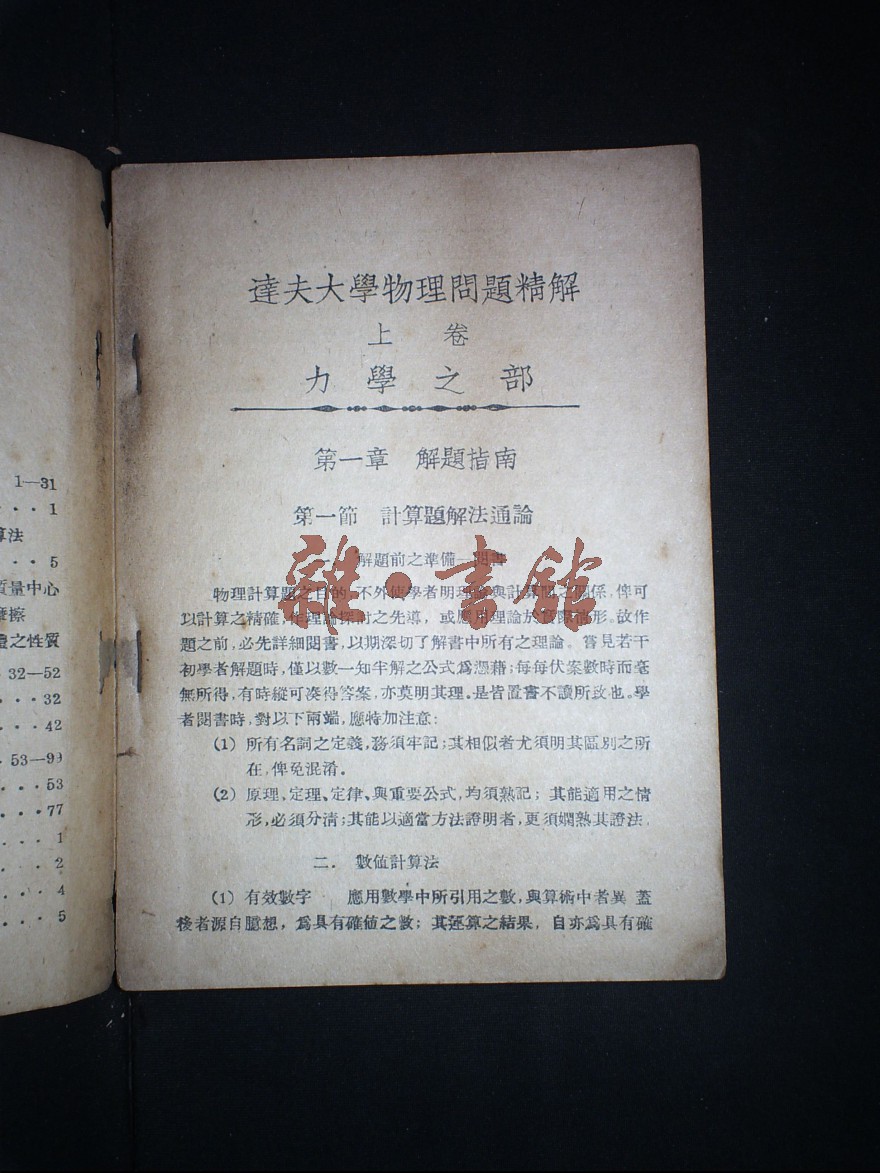 1—31
1
算法
5
質量中心
摩擦
體之性質
32—52
32
42
53—99
53
77
1
2
4
5
達夫大學物理問題精解
上 卷
力 學 之 部
第一章 解題指南
第一節 計算題解法通論
一. 解題前之準備—閱書
物理計算題之目的,不外使學者明理論與計算間之關係,俾可
以計算之精確,作理論探討之先導,或應用理論於實際情形。故作
題之前,必先詳細閱書,以期深切了解書中所有之理論。嘗見若干
初學者解題時,僅以數一知半解之公式爲憑藉;每每伏案數時而毫
無所得,有時縱可湊得答案,亦莫明其理。是皆置書不讀所致也。學
者閱書時,對以下兩端,應特加注意:
(1) 所有名詞之定義,務須牢記;其相似者尤須明其區別之所
在,俾免混淆。
(2) 原理、定理、定律、與重要公式,均須熟記;其能適用之情
形,必須分淸;其能以適當方法證明者,更須嫻熟其證法。
二. 數値計算法
(1) 有效數字 應用數學中所引用之數,與算術中者異 蓋
後者源自臆想,爲具有確値之數;其運算之結果,自亦爲具有確
雜·書館